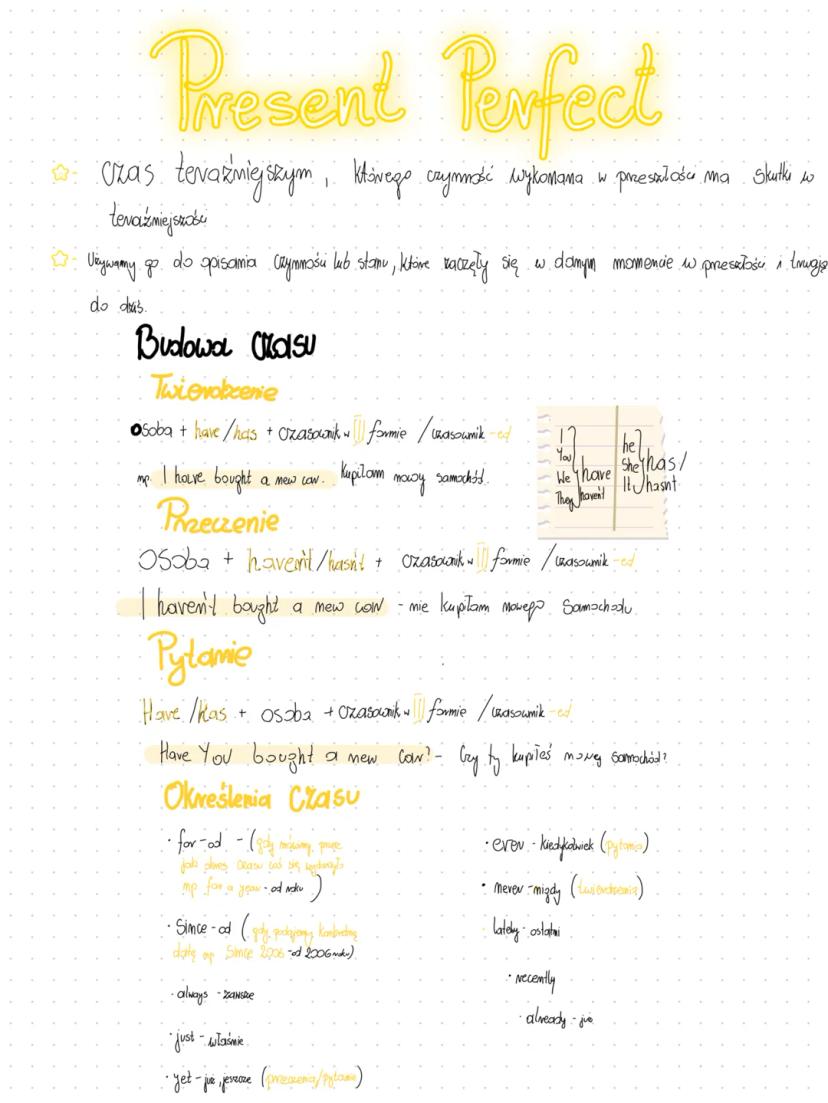 Present Perfect
czas teraźniejszym, którego czynność wykonana w przeszłości ma skutki w
teraźniejszości
Używamy go do opisania czynności lub stanu, które zaczęły się w danym momencie w przeszłości i trwają
do dziś.
Budowa czasu
Twierdzenie
osoba + have/has + czasownik w III formie / czasownik -ed
np. I have bought a new car. Kupiłam nowy samochód.
I
You
We
They
have
haven't
he
she
It
has/
hasn't
Przeczenie
osoba + haven't/hasn't + czasownik w III formie / czasownik -ed
I haven't bought a new car - nie kupiłam nowego samochodu
Pytanie
Have/Has + osoba + czasownik w III formie / czasownik -ed
Have You bought a new car? - Czy ty kupiłeś nowy samochód?
Określenia czasu
· for - od - (gdy mówimy przez
jaki okres czasu coś się wydarzyło
np for a year - od roku)
· Since - od (gdy podajemy konkretną
datę np. Since 2006 - od 2006 roku)
· always - zawsze
· just - właśnie
· yet - już, jeszcze (przeczenia/pytanie)
· ever - kiedykolwiek (pytania)
· never - nigdy (twierdzenia)
· lately - ostatni
· recently
· already - już